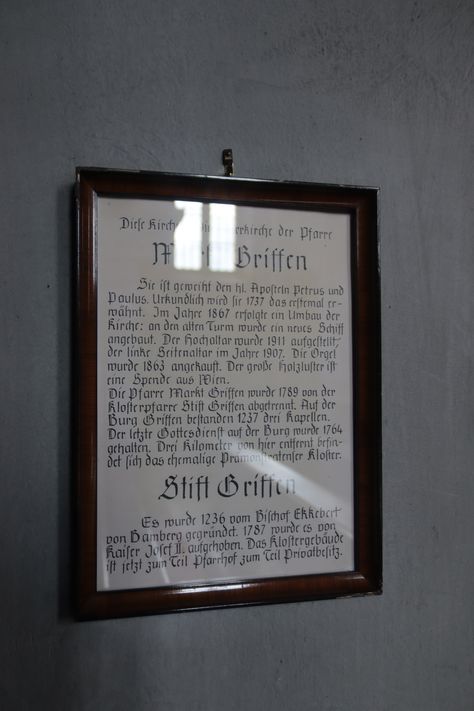 Diese Kirche der Pfarre
Markt Griffen
Sie ist geweiht den hl. Aposteln Petrus und
Paulus. Urkundlich wird sie 1737 das erstemal er-
wähnt. Im Jahre 1867 erfolgte ein Umbau der
Kirche: an den alten Turm wurde ein neues Schiff
angebaut. Der Hochaltar wurde 1911 aufgestellt,
der linke Seitenaltar im Jahre 1907. Die Orgel
wurde 1863 angekauft. Der große Holzluster ist
eine Spende aus Wien.
Die Pfarre Markt Griffen wurde 1789 von der
Klosterpfarre Stift Griffen abgetrennt. Auf der
Burg Griffen bestanden 1237 drei Kapellen.
Der letzte Gottesdienst auf der Burg wurde 1764
gehalten. Drei Kilometer von hier entfernt befin-
det sich das ehemalige Prämonstratenser Kloster.
Stift Griffen
Es wurde 1236 vom Bischof Ekkebert
von Bamberg gegründet. 1787 wurde es von
Kaiser Josef II. aufgehoben. Das Klostergebäude
ist jetzt zum Teil Pfarrhof zum Teil Privatbesitz.